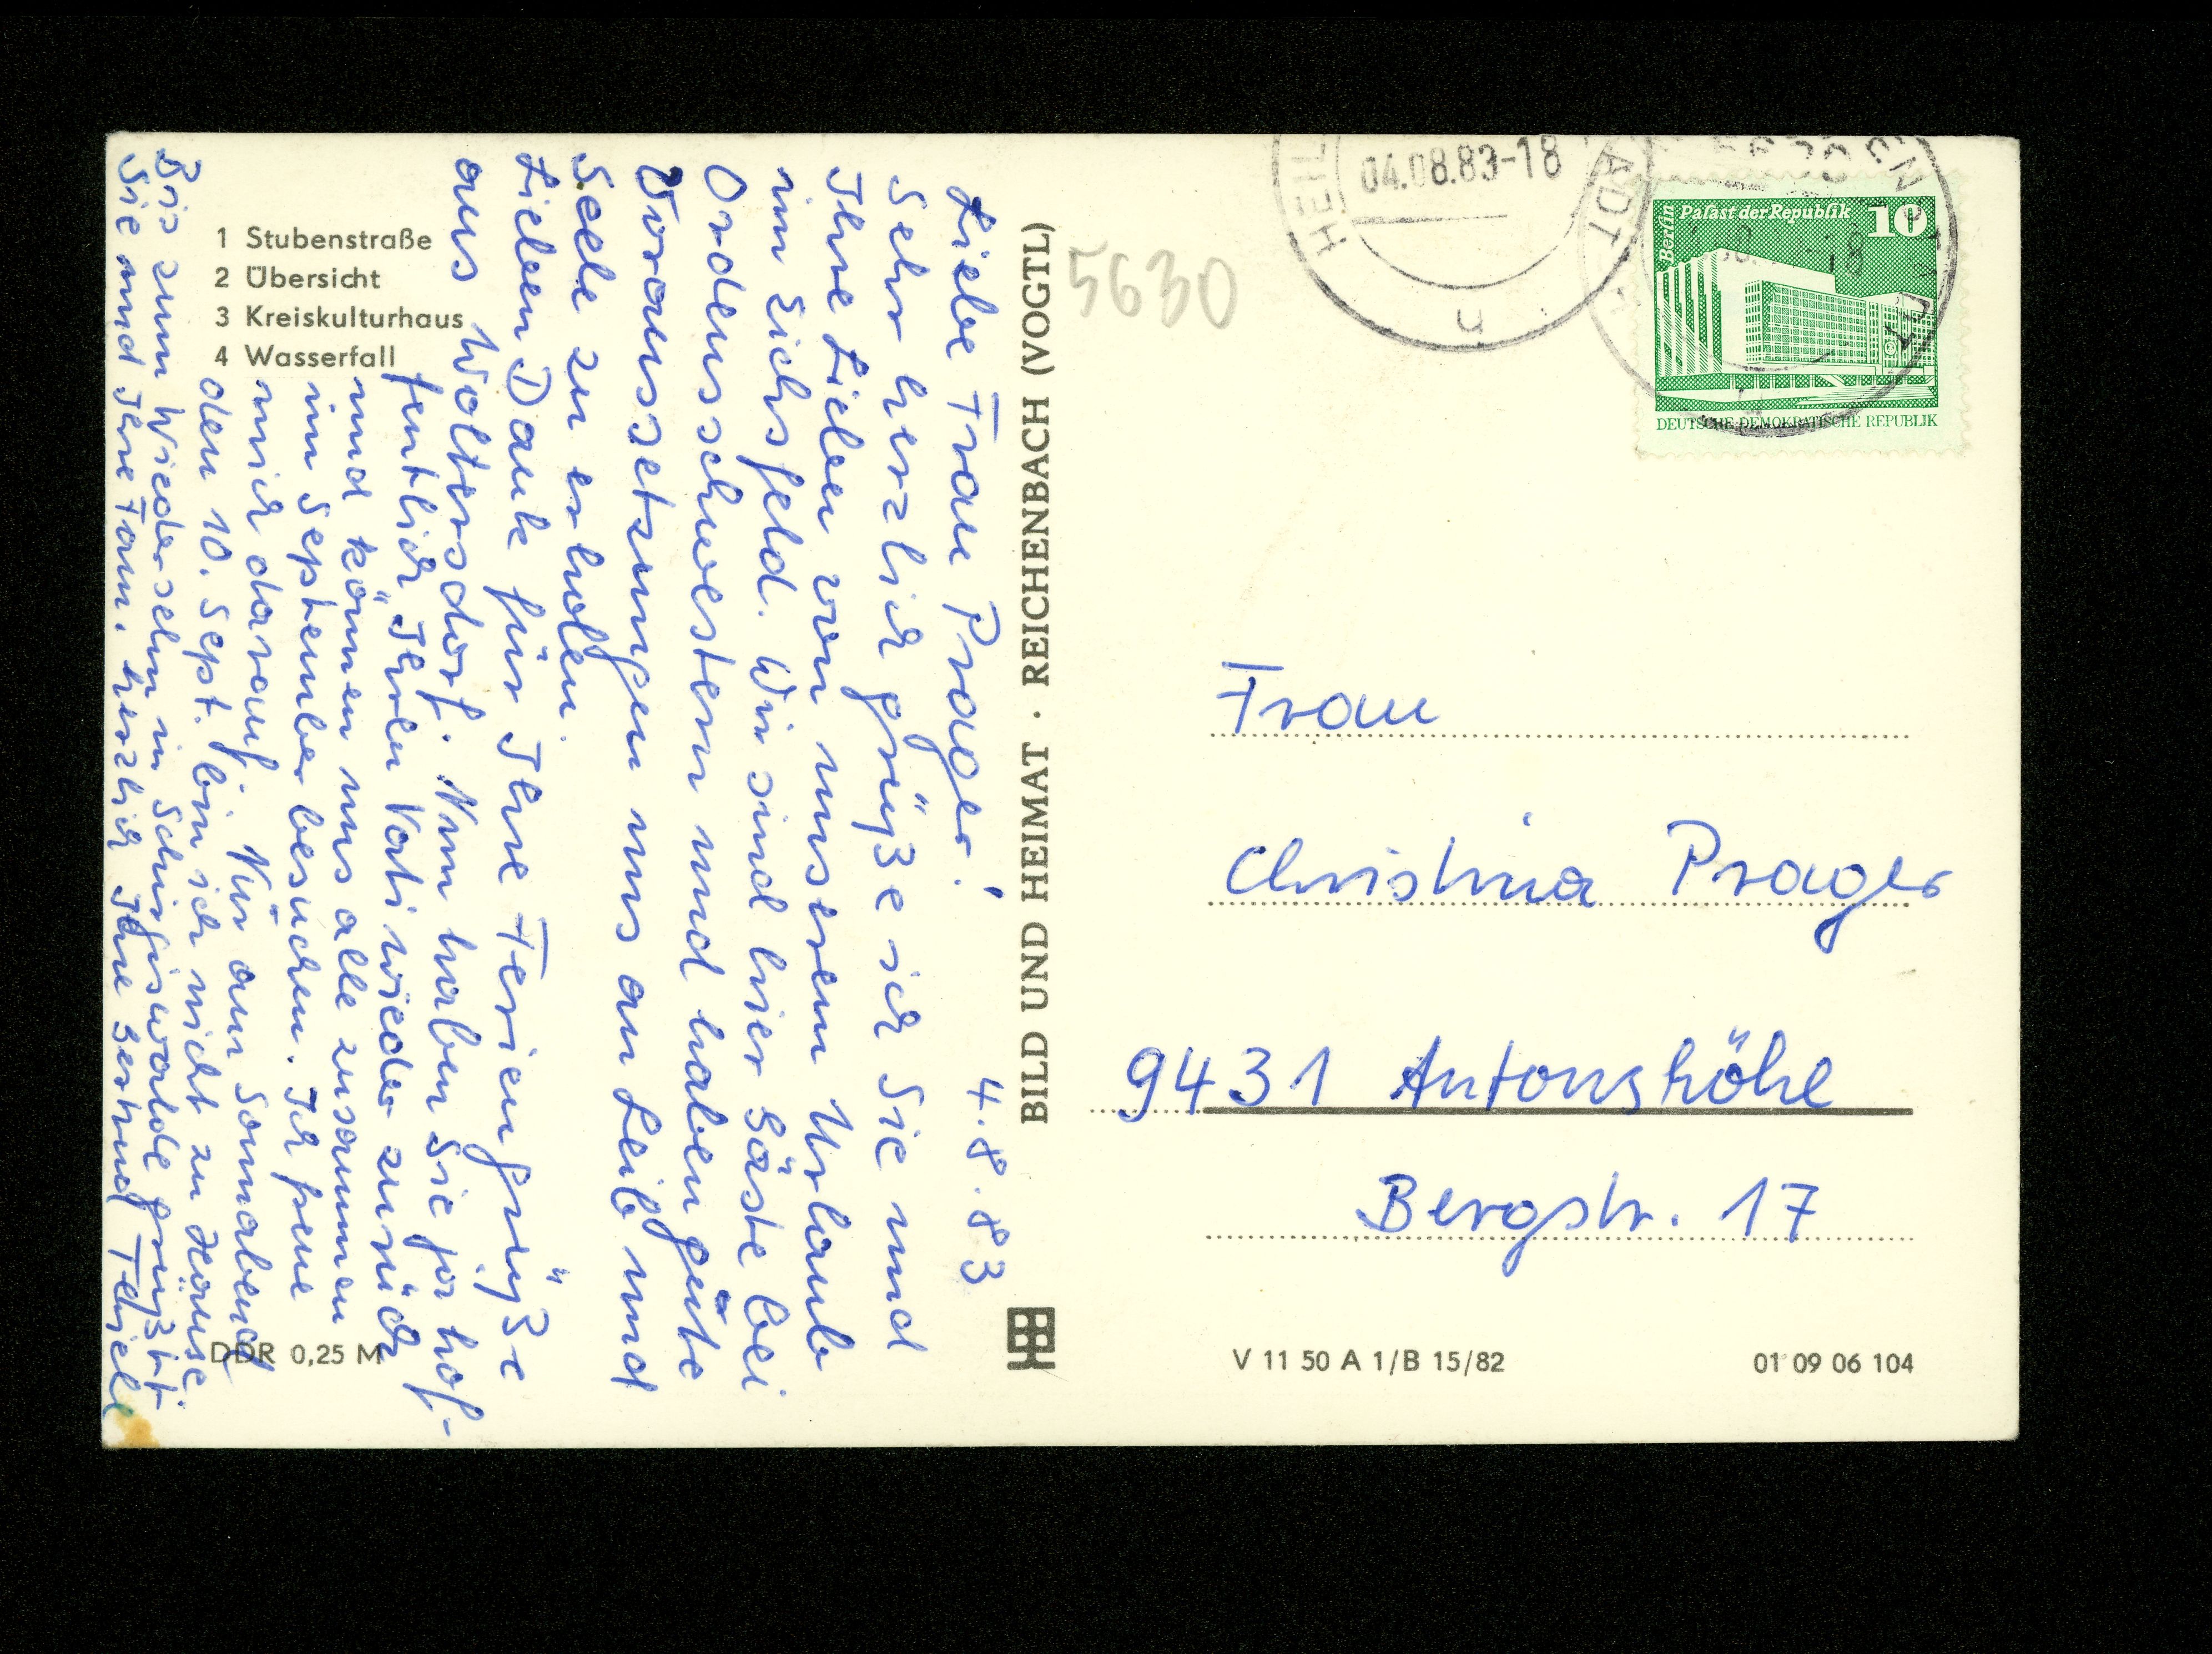 1 Stubenstraße
2 Übersicht
3 Kreiskulturhaus
4 Wasserfall
4.8.83
Liebe Frau Prager!
Sehr herzlich grüße ich Sie und
Ihre Lieben von unserem Urlaub
im Eichsfeld. Wir sind hier Gäste bei
Ordensschwestern und haben gute
Voraussetzungen uns an Leib und
Seele zu erholen.
Lieben Dank für Ihre Feriengrüße
aus Woltersdorf. Nun haben Sie ja hof-
fentlich Ihren Vati wieder zurück
und können uns alle zusammen
im September besuchen. Ich freue
mich darauf. Nur am Sonnabend
den 10. Sept. bin ich nicht zu Hause.
Bis zum Wiedersehn in grüßt
Sie und Ihre Fam. herzlich Ihre Gertrud
DDR 0,25 M
BILD UND HEIMAT · REICHENBACH (VOGTL)
5630
HEIL ADT
04.08.83-18
u
Berlin Palast der Republik 10
DEUTSCHE DEMOKRATISCHE REPUBLIK
Frau
Christina Prager
9431 Antonshöhe
Bergstr. 17
V 11 50 A 1/B 15/82
01 09 06 104